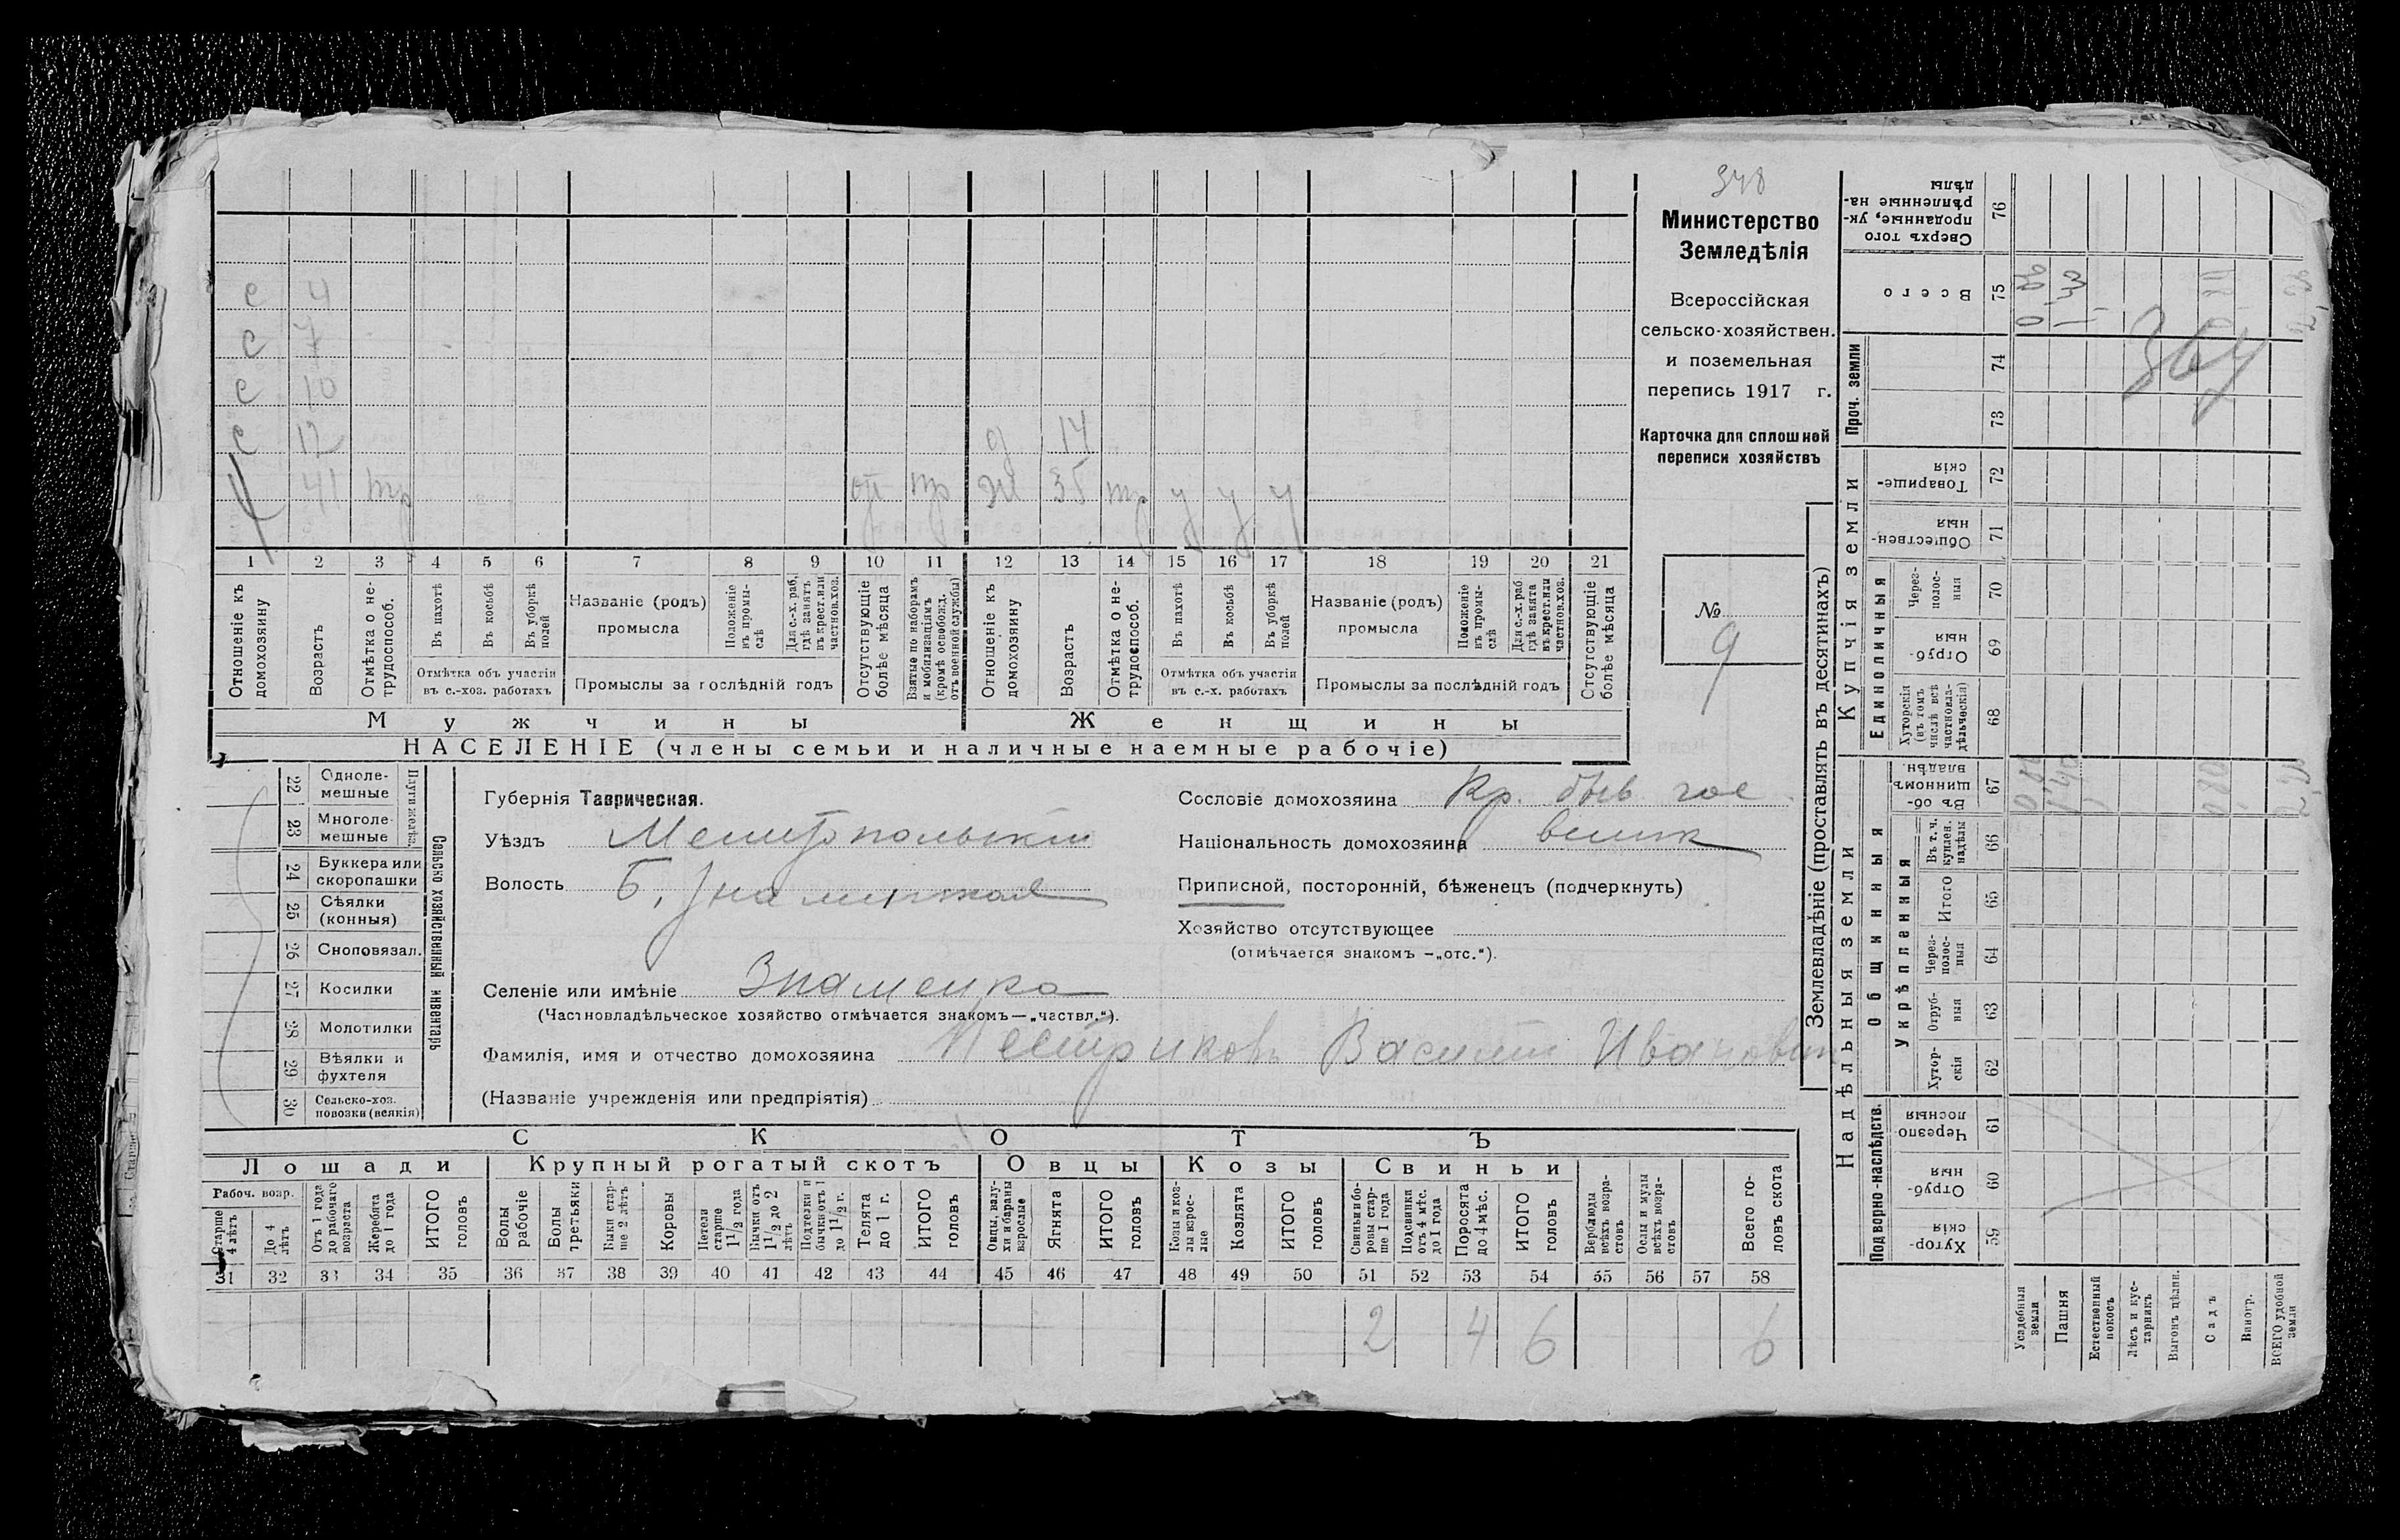 348
Министерство
Земледѣлія
Всероссійская
сельско-хозяйствен.
и поземельная
перепись 1917 г.
Карточка для сплошной
переписи хозяйствъ
№
9
с 4
с 7
с 10
с 12 д 14
41 тр от тр ж 35 тр у у у
1 2 3 4 5 6 7 8 9 10 11 12 13 14 15 16 17 18 19 20 21
Отношеніе къ домохозяину
Возрастъ
Отмѣтка о не-трудоспособ.
Въ пахотѣ
Въ косьбѣ
Въ уборкѣ полей
Отмѣтка объ участіи
въ с.-хоз. работахъ
Названіе (родъ)
промысла
Положеніе въ промы-слѣ
Для с.-х. раб. гдѣ занятъ въ крест. или частнов. хоз.
Промыслы за послѣдній годъ
Отсутствующіе болѣе мѣсяца
Взятые по наборамъ и мобилизаціямъ (кромѣ освобожд. отъ военной службы)
Отношеніе къ домохозяину
Возрастъ
Отмѣтка о не-трудоспособ.
Въ пахотѣ
Въ косьбѣ
Въ уборкѣ полей
Отмѣтка объ участіи
въ с.-х. работахъ
Названіе (родъ)
промысла
Положеніе въ промы-слѣ
Для с.-х. раб. гдѣ занята въ крест. или частнов. хоз.
Промыслы за послѣдній годъ
Отсутствующіе болѣе мѣсяца
Мужчины Женщины
НАСЕЛЕНІЕ (члены семьи и наличные наемные рабочіе)
22 Одноле-мешные
23 Многоле-мешные
Плуги желѣз.
24 Буккера или скоропашки
25 Сѣялки (конныя)
26 Сноповязал.
27 Косилки
28 Молотилки
29 Вѣялки и фухтеля
30 Сельско-хоз. повозки (всякія)
Сельско хозяйственный инвентарь
Губернія Таврическая.
Уѣздъ Мелитопольскій
Волость Б. Знаменская
Сословіе домохозяина Кр. быв. гос
Національность домохозяина велик
Приписной, посторонній, бѣженецъ (подчеркнуть)
Хозяйство отсутствующее
(отмѣчается знакомъ —„отс.“).
Селеніе или имѣніе Знаменка
(Частновладѣльческое хозяйство отмѣчается знакомъ—„частвл.“).
Фамилія, имя и отчество домохозяина Пестриковъ Василій Иванович
(Названіе учрежденія или предпріятія)
СКОТЪ
Лошади Крупный рогатый скотъ Овцы Козы Свиньи
Рабоч. возр.
Старше 4 лѣтъ
До 4 лѣтъ
Отъ 1 года до рабочаго возраста
Жеребята до 1 года
ИТОГО головъ
Волы рабочіе
Волы третьяки
Быки стар-ше 2 лѣтъ
Коровы
Нетели старше 1 1/2 года
Бычки отъ 1 1/2 до 2 лѣтъ
Подтелки и бычки отъ 1 до 1 1/2 г.
Телята до 1 г.
ИТОГО головъ
Овцы, валу-хи и бараны взрослые
Ягнята
ИТОГО головъ
Козы и коз-лы взрос-лые
Козлята
ИТОГО головъ
Свиньи и бо-ровы стар-ше 1 года
Подсвинки отъ 4 мѣс. до 1 года
Поросята до 4 мѣс.
ИТОГО головъ
Верблюды всѣхъ возра-стовъ
Ослы и мулы всѣхъ возра-стовъ
Всего го-ловъ скота
31 32 33 34 35 36 37 38 39 40 41 42 43 44 45 46 47 48 49 50 51 52 53 54 55 56 57 58
2 4 6 6
Землевладѣніе (проставлять въ десятинахъ)
Надѣльныя земли Купчія земли Проч. земли
Подворно-наслѣдств.
Общинныя
Укрѣпленныя
Единоличныя
Хутор-скія 59
Отруб-ныя 60
Черезпо-лосныя 61
Хутор-скія 62
Отруб-ныя 63
Через-полос-ныя 64
Итого 65
Въ т. ч. куплен. надѣлы 66
Въ об-щинномъ владѣн. 67
Хуторскія (въ томъ числѣ всѣ частновла-дѣльческія) 68
Отруб-ныя 69
Через-полос-ныя 70
Обществен-ныя 71
Товарище-скія 72
73
74
Всего 75
Сверхъ того проданные, ук-рѣпленные на-дѣлы 76
Усадебныя земли
Пашня
Естественный покосъ
Лѣсъ и кус-тарникъ
Выгонъ цѣлин.
Садъ
Виногр.
ВСЕГО удобной земли